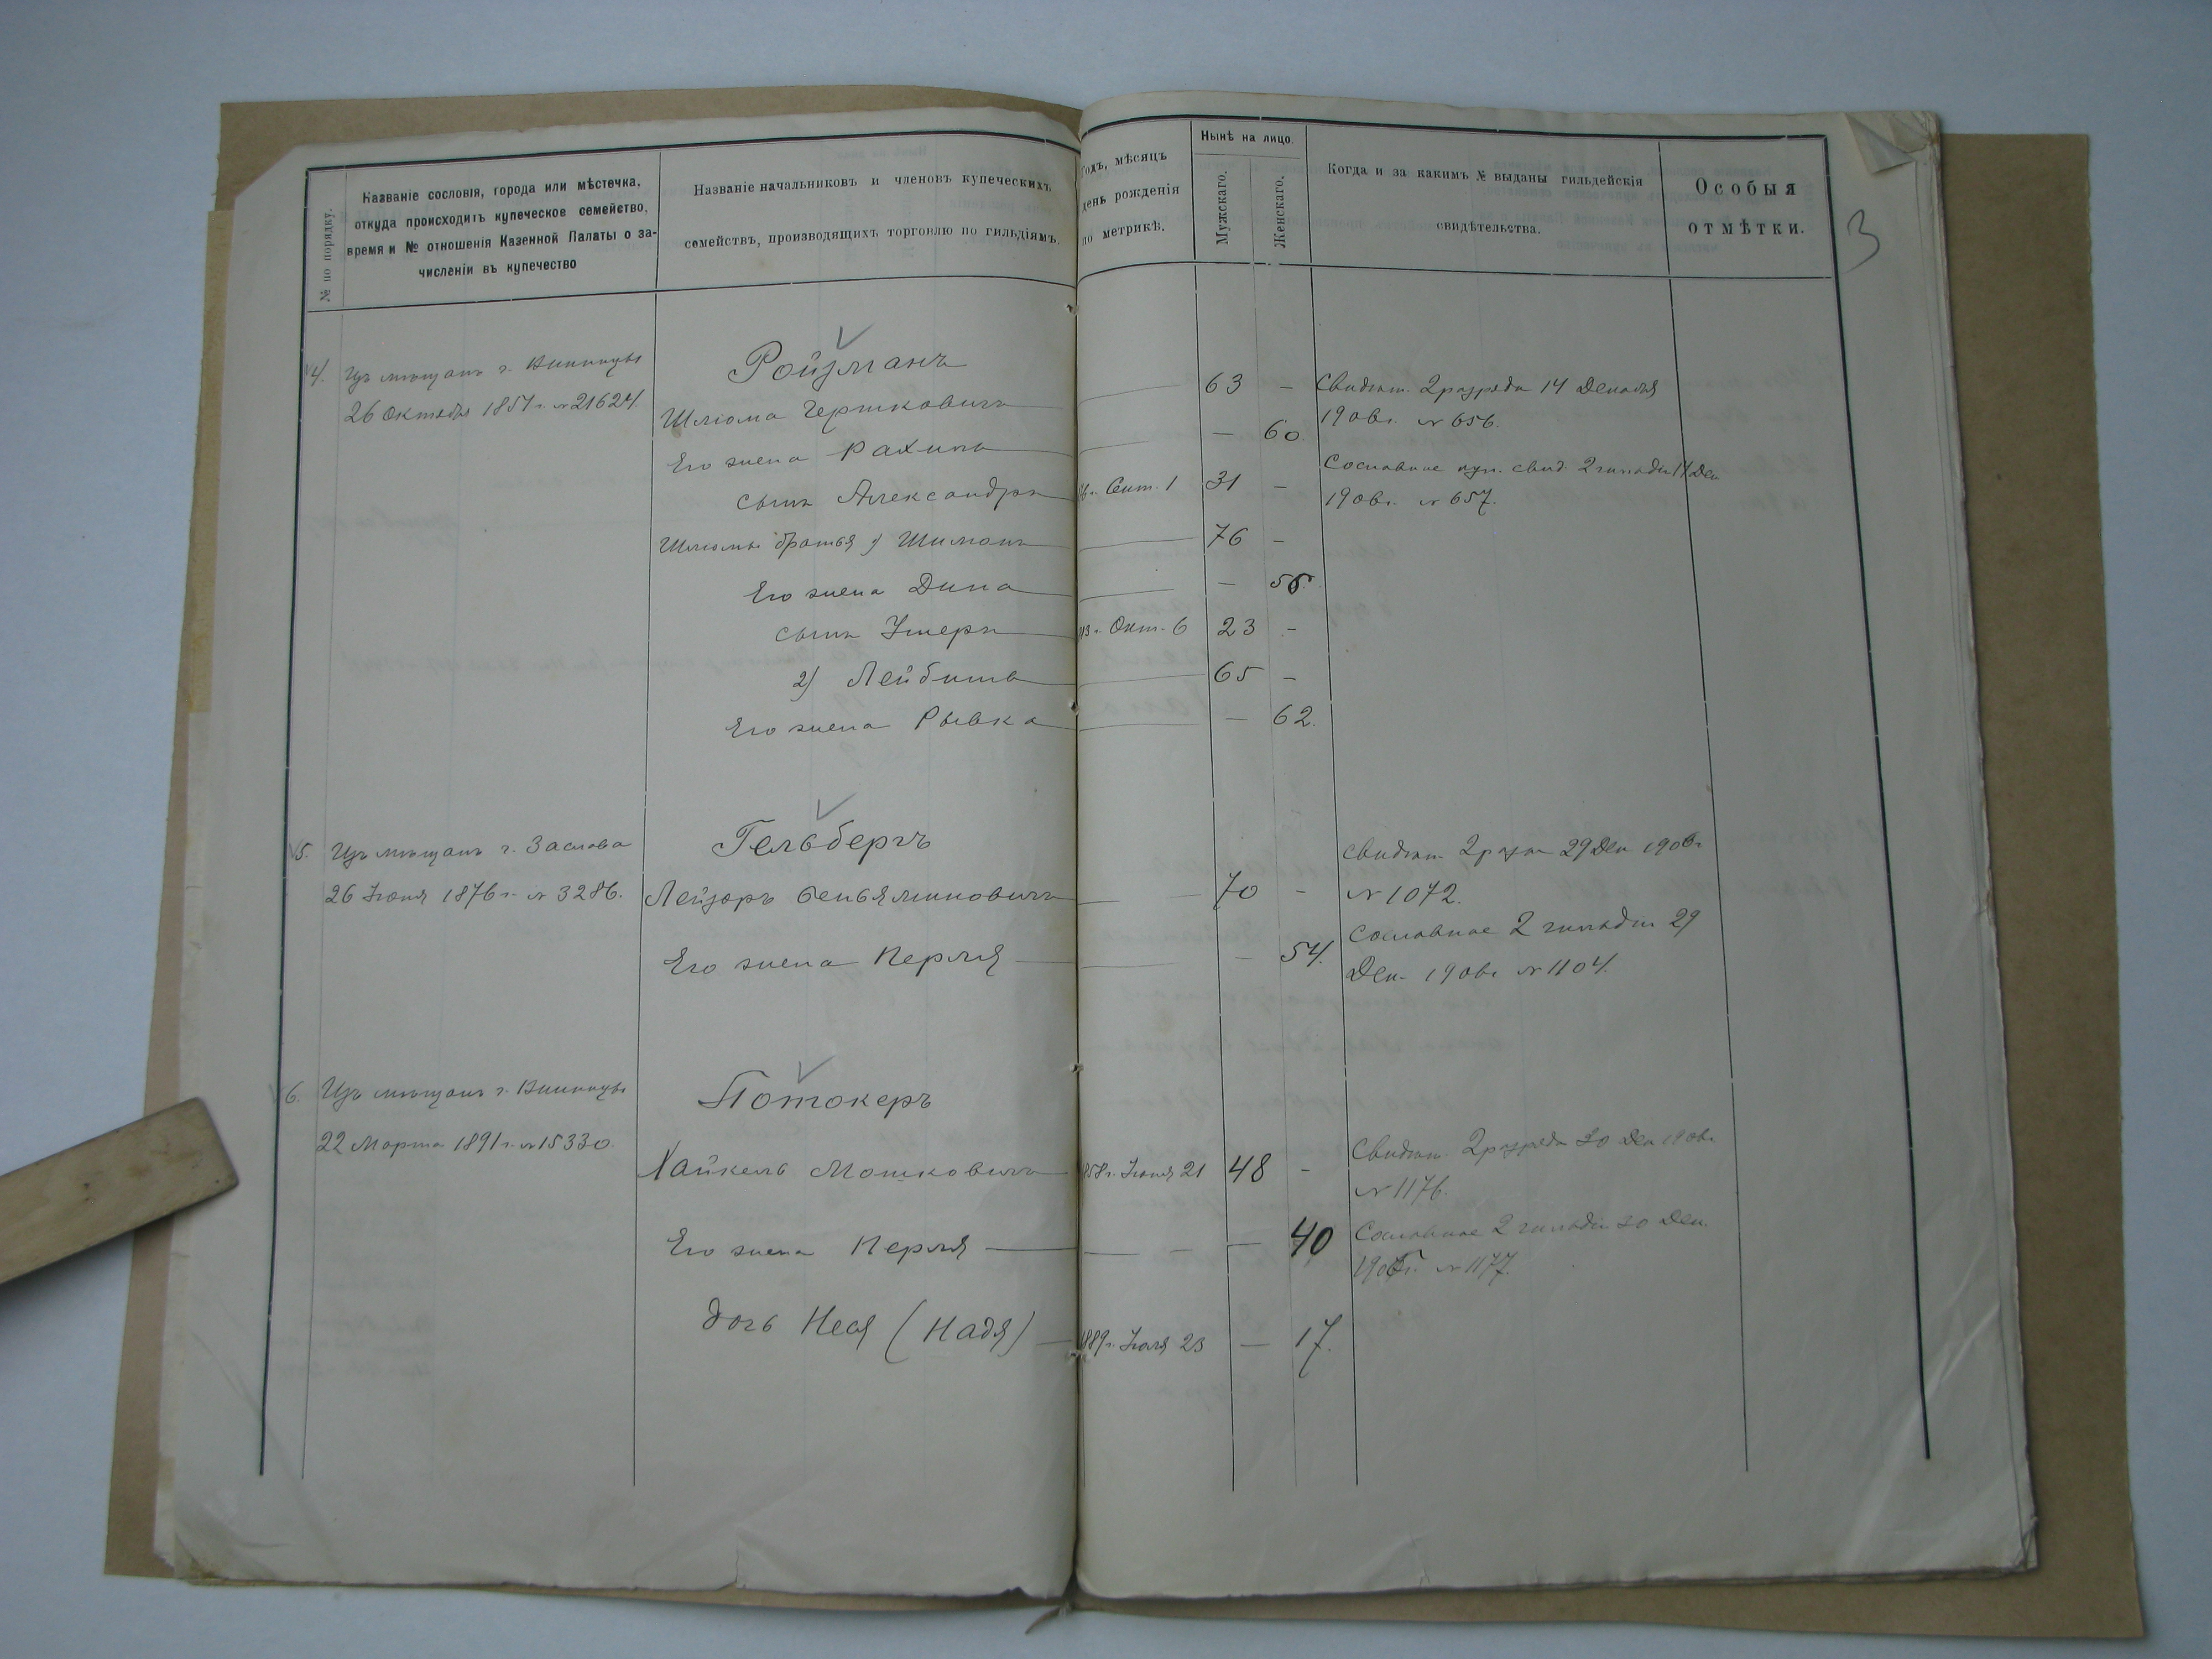 № по порядку.
Названіе сословія, города или мѣстечка,
откуда происходитъ купеческое семейство,
время и № отношенія Казенной Палаты о за-
численіи въ купечество
Названіе начальниковъ и членовъ купеческихъ
семействъ, производящихъ торговлю по гильдіямъ.
Годъ, мѣсяцъ
день рожденія
по метрикѣ.
Нынѣ на лицо.
Мужскаго.
Женскаго.
Когда и за какимъ № выданы гильдейскія
свидѣтельства.
Особыя
отмѣтки.
3
4. Изъ мѣщанъ г. Винницы
26 Октября 1851 г. № 21624.
Ройзманъ
Шлiома Гершковичъ — 63 — Свидѣт. 2 разряда 14 Декабря
1906 г. № 656.
Его жена Рахиль — — 60.
Сословное куп. свид. 2 гильдіи 14 Дек
1906 г. № 657.
сынъ Александръ Сент. 1 31 —
Шлiомы братья 1) Шимонъ — 76 —
Его жена Дина — — 56.
сынъ Ушеръ Окт. 6 23 —
2) Лейбишъ — 65 —
Его жена Рывка — — 62.
5. Изъ мѣщанъ г. Заслава
26 Іюня 1876 г. № 3286.
Гельбергъ
Лейзоръ Беньяминовичъ — 70 —
Его жена Перля — — 54.
Свидѣт. 2 разр 29 Дек 1906 г
№ 1072.
Сословное 2 гильдіи 29
Дек. 1906 г № 1104.
6. Изъ мѣщанъ г. Винницы
22 Марта 1891 г. № 15330.
Потокеръ
Хайкель Мошковичъ 1858 г. Іюня 21 48 —
Его жена Перля — — — 40
дочь Неся (Надя) — 1889 г. Іюля 23 — 17.
Свидѣт. 2 разряда 30 Дек 1906 г.
№ 1176.
Сословное 2 гильдіи 30 Дек.
1906 г. № 1177.